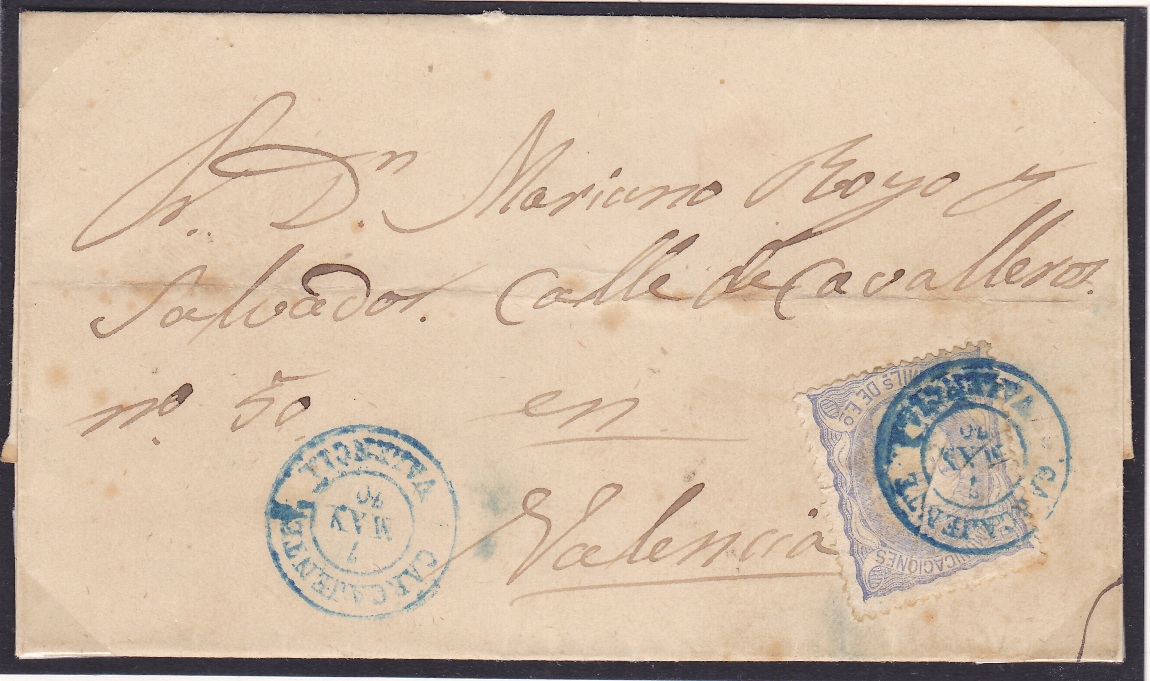 Sr. Dn. Mariano Royo y
Salvador. Calle de Cavalleros.
nº 50. en
Valencia
CARCAJENTE
VALENCIA
7
MAY
70
MILS DE Eo
COMUNICACIONES
CARCAJENTE
VALENCIA
MAY
70